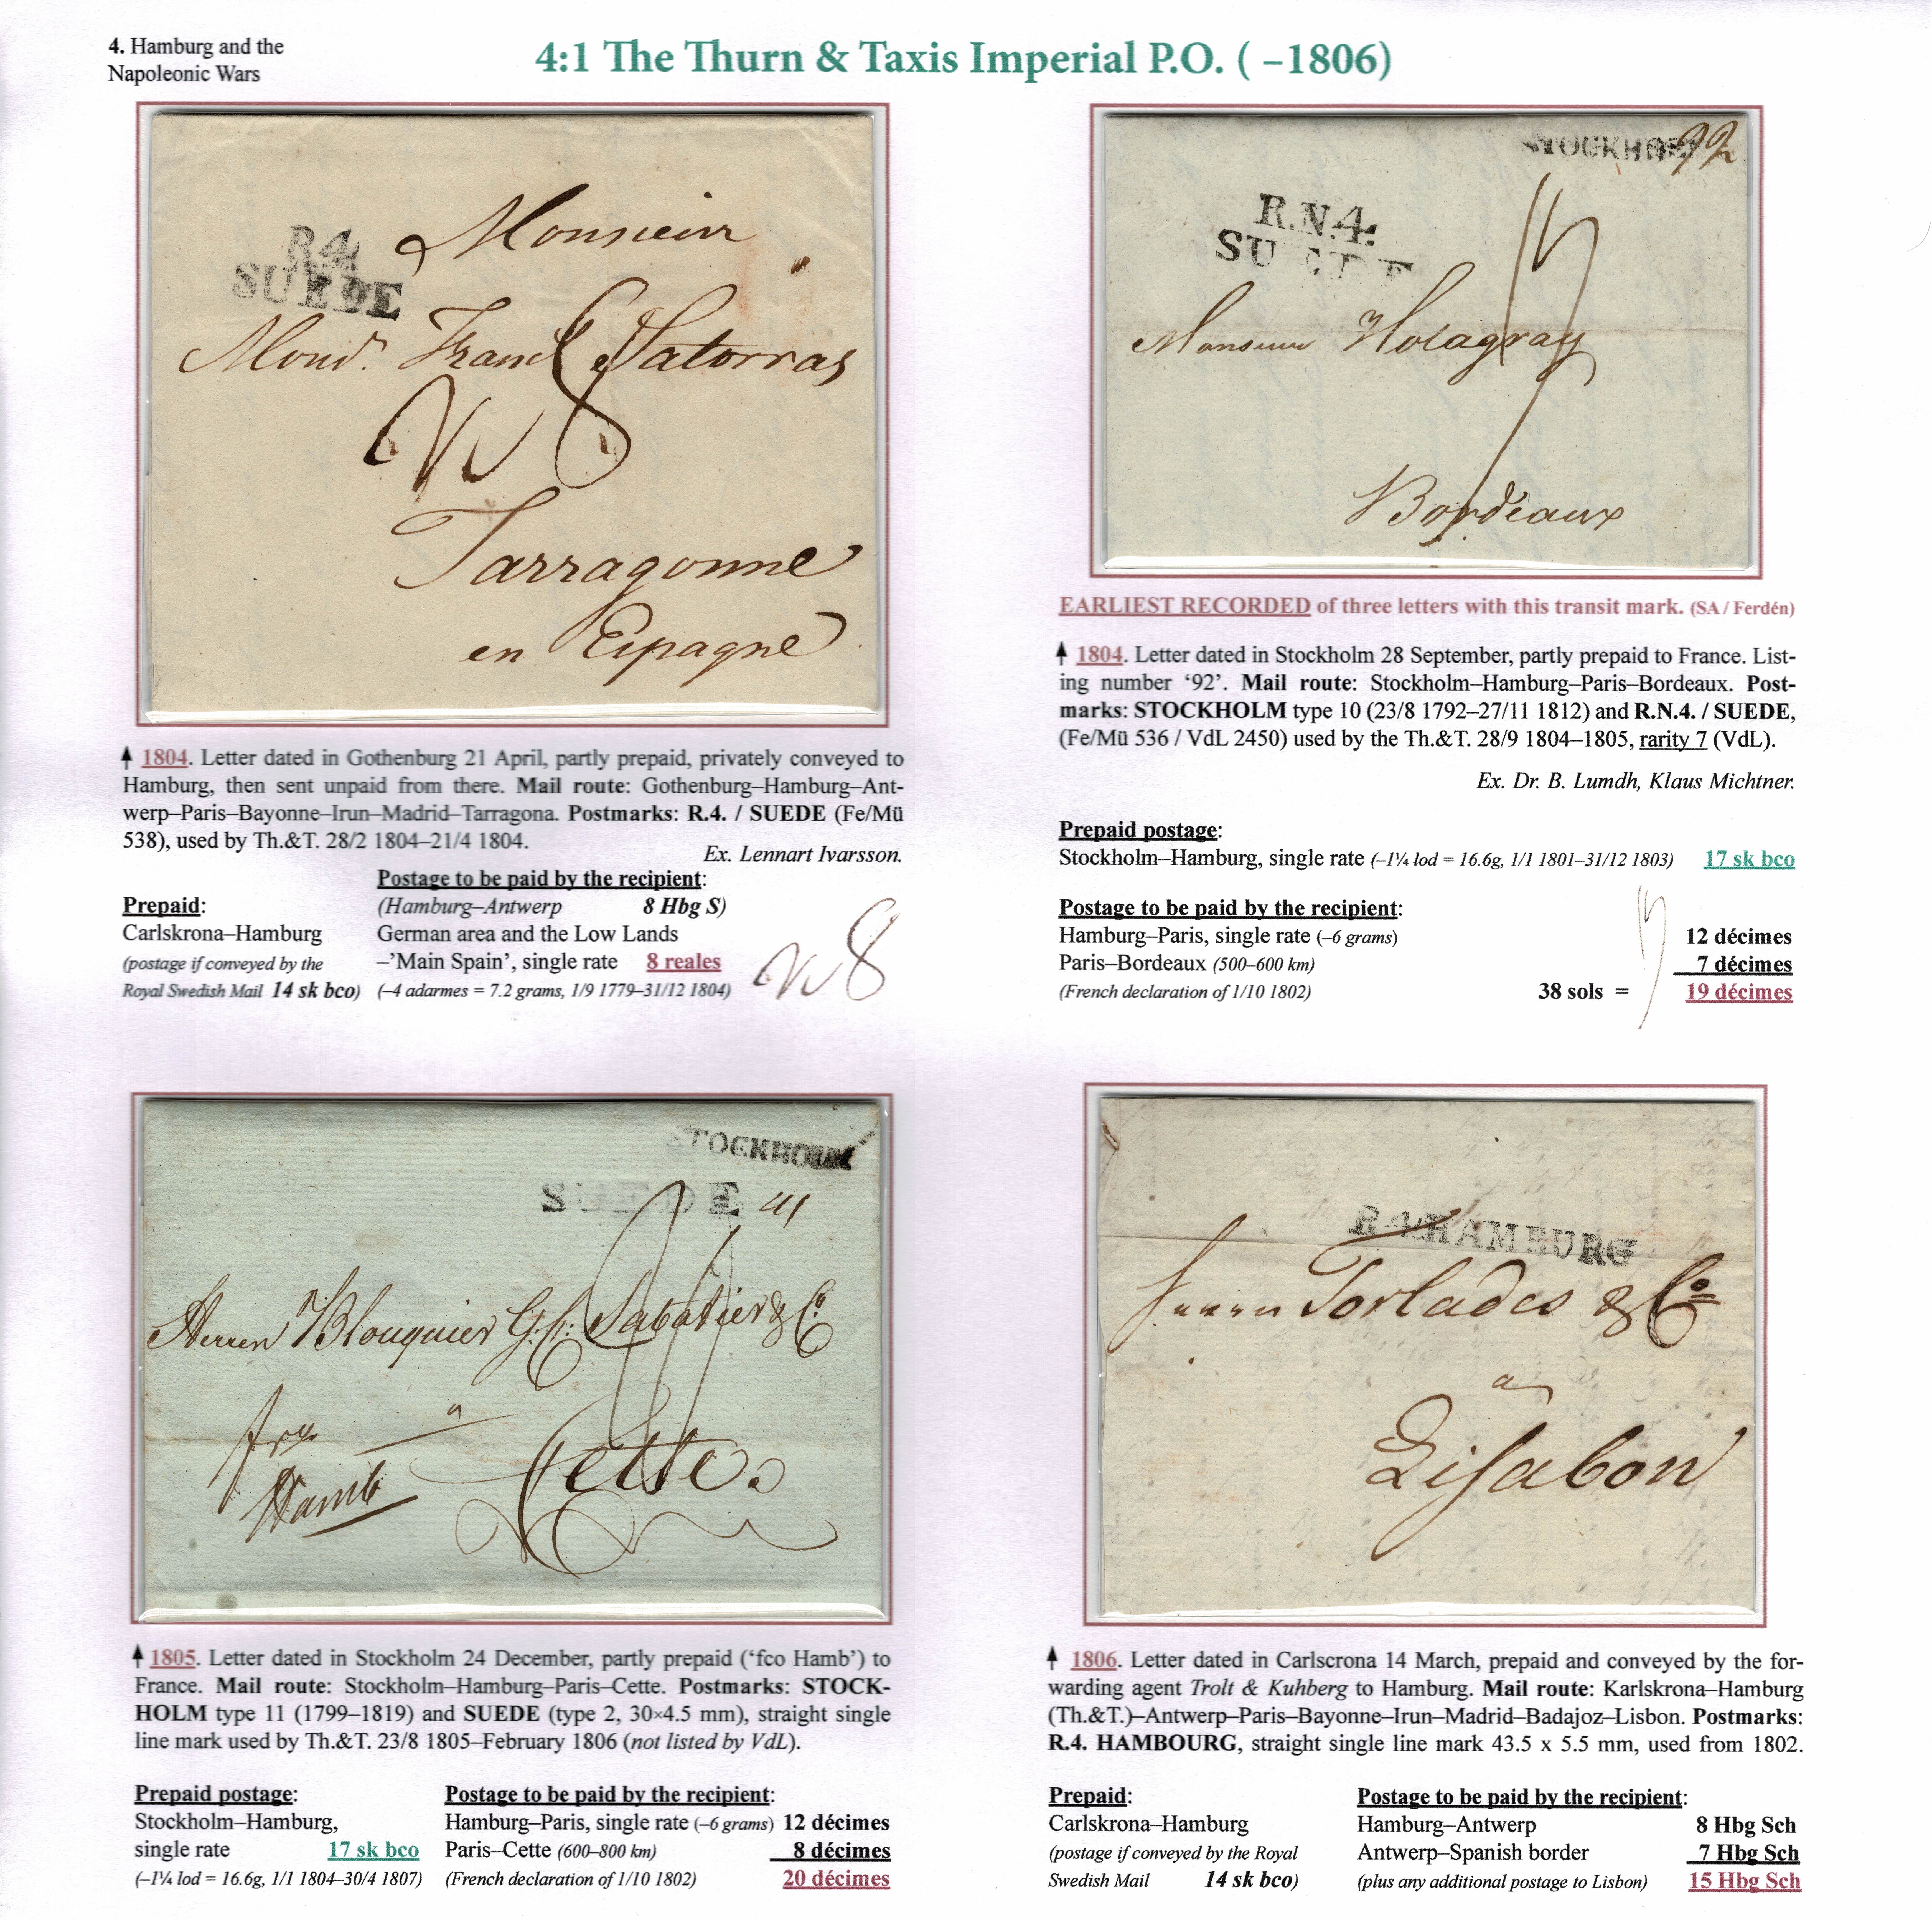 4. Hamburg and the
Napoleonic Wars
4:1 The Thurn & Taxis Imperial P.O. ( –1806)
R.4.
SUEDE
Monsieur
Satorras
8
Tarragonne
en Espagne
↑ 1804. Letter dated in Gothenburg 21 April, partly prepaid, privately conveyed to
Hamburg, then sent unpaid from there. Mail route: Gothenburg–Hamburg–Ant-
werp–Paris–Bayonne–Irun–Madrid–Tarragona. Postmarks: R.4. / SUEDE (Fe/Mü
538), used by Th.&T. 28/2 1804–21/4 1804.
Ex. Lennart Ivarsson.
Prepaid:
Carlskrona–Hamburg
(postage if conveyed by the
Royal Swedish Mail 14 sk bco)
Postage to be paid by the recipient:
(Hamburg–Antwerp 8 Hbg S)
German area and the Low Lands
–’Main Spain’, single rate 8 reales
(–4 adarmes = 7.2 grams, 1/9 1779–31/12 1804)
8
STOCKHO
92
R.N.4.
SUEDE
Monsieur Holagray
Bordeaux
EARLIEST RECORDED of three letters with this transit mark. (SA / Ferdén)
↑ 1804. Letter dated in Stockholm 28 September, partly prepaid to France. List-
ing number ‘92’. Mail route: Stockholm–Hamburg–Paris–Bordeaux. Post-
marks: STOCKHOLM type 10 (23/8 1792–27/11 1812) and R.N.4. / SUEDE,
(Fe/Mü 536 / VdL 2450) used by the Th.&T. 28/9 1804–1805, rarity 7 (VdL).
Ex. Dr. B. Lumdh, Klaus Michtner.
Prepaid postage:
Stockholm–Hamburg, single rate (–1¼ lod = 16.6g, 1/1 1801–31/12 1803) 17 sk bco
Postage to be paid by the recipient:
Hamburg–Paris, single rate (–6 grams) 12 décimes
Paris–Bordeaux (500–600 km) 7 décimes
(French declaration of 1/10 1802) 38 sols = 19 décimes
STOCKHOLM
SUEDE
Herren Blouquier G. f: Sabatier & Co.
a
fco
Hamb
Cette.
↑ 1805. Letter dated in Stockholm 24 December, partly prepaid (‘fco Hamb’) to
France. Mail route: Stockholm–Hamburg–Paris–Cette. Postmarks: STOCK-
HOLM type 11 (1799–1819) and SUEDE (type 2, 30×4.5 mm), straight single
line mark used by Th.&T. 23/8 1805–February 1806 (not listed by VdL).
Prepaid postage:
Stockholm–Hamburg,
single rate 17 sk bco
(–1¼ lod = 16.6g, 1/1 1804–30/4 1807)
Postage to be paid by the recipient:
Hamburg–Paris, single rate (–6 grams) 12 décimes
Paris–Cette (600–800 km) 8 décimes
(French declaration of 1/10 1802) 20 décimes
R.4.HAMBURG
Herren Torlades & Co
a
Lisabon
↑ 1806. Letter dated in Carlscrona 14 March, prepaid and conveyed by the for-
warding agent Trolt & Kuhberg to Hamburg. Mail route: Karlskrona–Hamburg
(Th.&T.)–Antwerp–Paris–Bayonne–Irun–Madrid–Badajoz–Lisbon. Postmarks:
R.4. HAMBOURG, straight single line mark 43.5 x 5.5 mm, used from 1802.
Prepaid:
Carlskrona–Hamburg
(postage if conveyed by the Royal
Swedish Mail 14 sk bco)
Postage to be paid by the recipient:
Hamburg–Antwerp 8 Hbg Sch
Antwerp–Spanish border 7 Hbg Sch
(plus any additional postage to Lisbon) 15 Hbg Sch